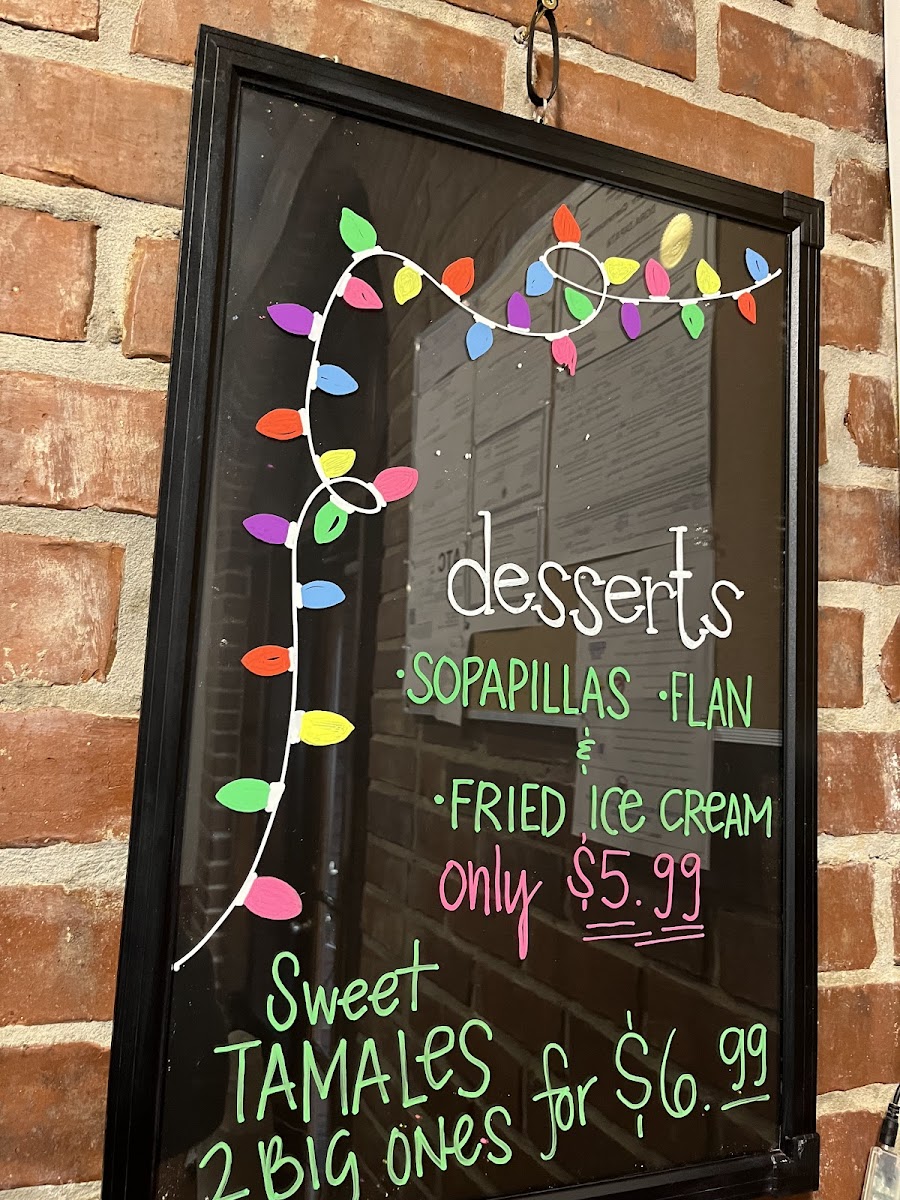 desserts
·SOPAPILLAS ·FLAN
&
·FRIED ICE CREAM
only $5.99
Sweet
TAMALES
2 BIG ONES for $6.99